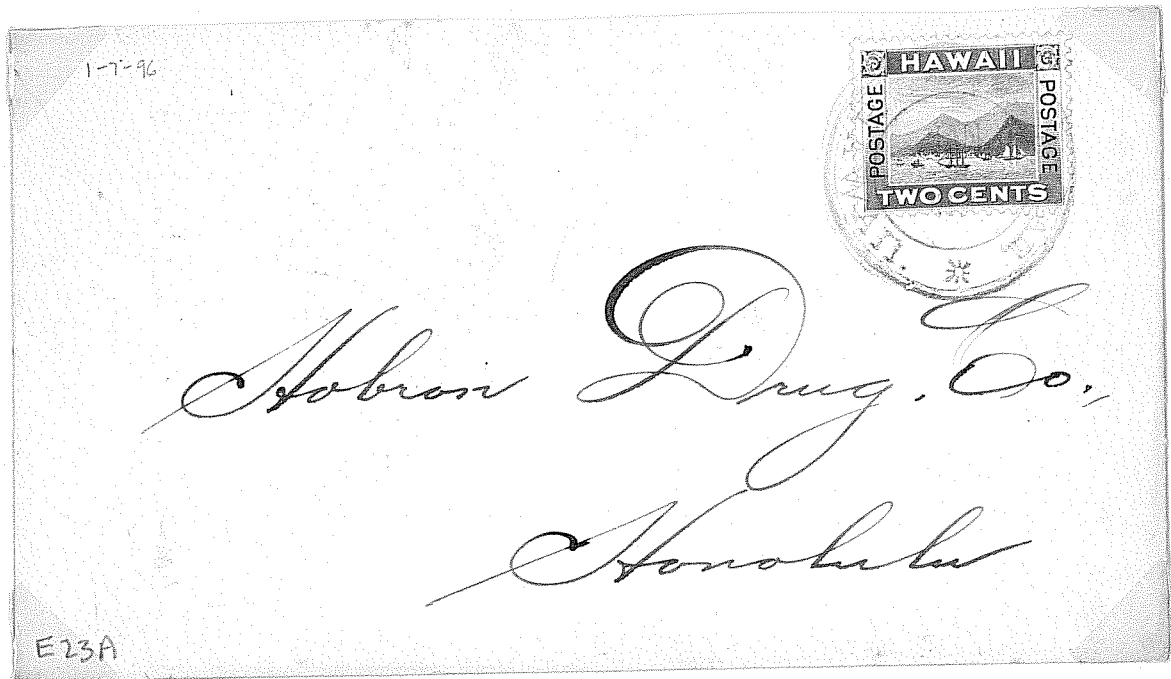 1-7-96
HAWAII
POSTAGE
POSTAGE
TWO CENTS
Hobron Drug. Co.,
Honolulu
E23A